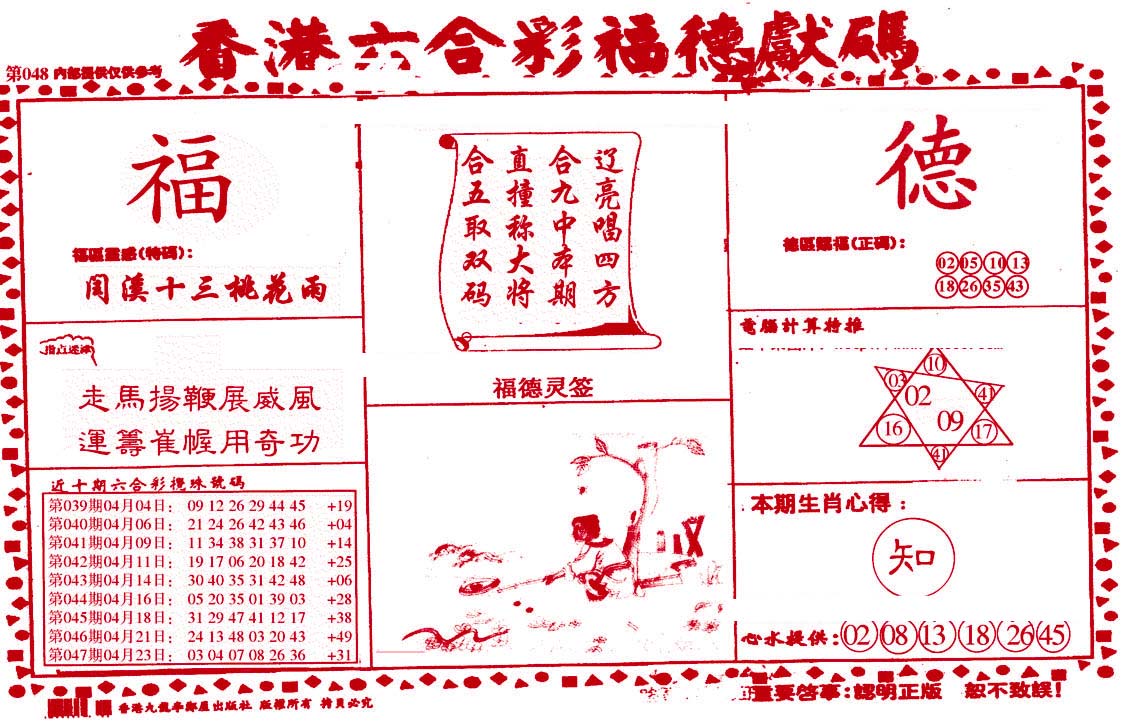 香港六合彩福德獻碼
第048 内部提供仅供參考
福
福區靈感(特碼):
閏溪十三桃花雨
指点迷津
走馬揚鞭展威風
運籌崔幄用奇功
近十期六合彩攪珠號碼
第039期04月04日: 09 12 26 29 44 45 +19
第040期04月06日: 21 24 26 42 43 46 +04
第041期04月09日: 11 34 38 31 37 10 +14
第042期04月11日: 19 17 06 20 18 42 +25
第043期04月14日: 30 40 35 31 42 48 +06
第044期04月16日: 05 20 35 01 39 03 +28
第045期04月18日: 31 29 47 41 12 17 +38
第046期04月21日: 24 13 48 03 20 43 +49
第047期04月23日: 03 04 07 08 26 36 +31
辽亮唱四方
合九中本期
直撞称大将
合五取双码
福德灵签
德
德區賜福(正碼):
02 05 10 13
18 26 35 43
電腦計算特推
10
03 41
02
09
16 17
41
本期生肖心得:
知
心水提供: 02 08 13 18 26 45
重要啓事:認明正版 恕不致誤!
香港九龍 出版社 版權所有 持頁必究